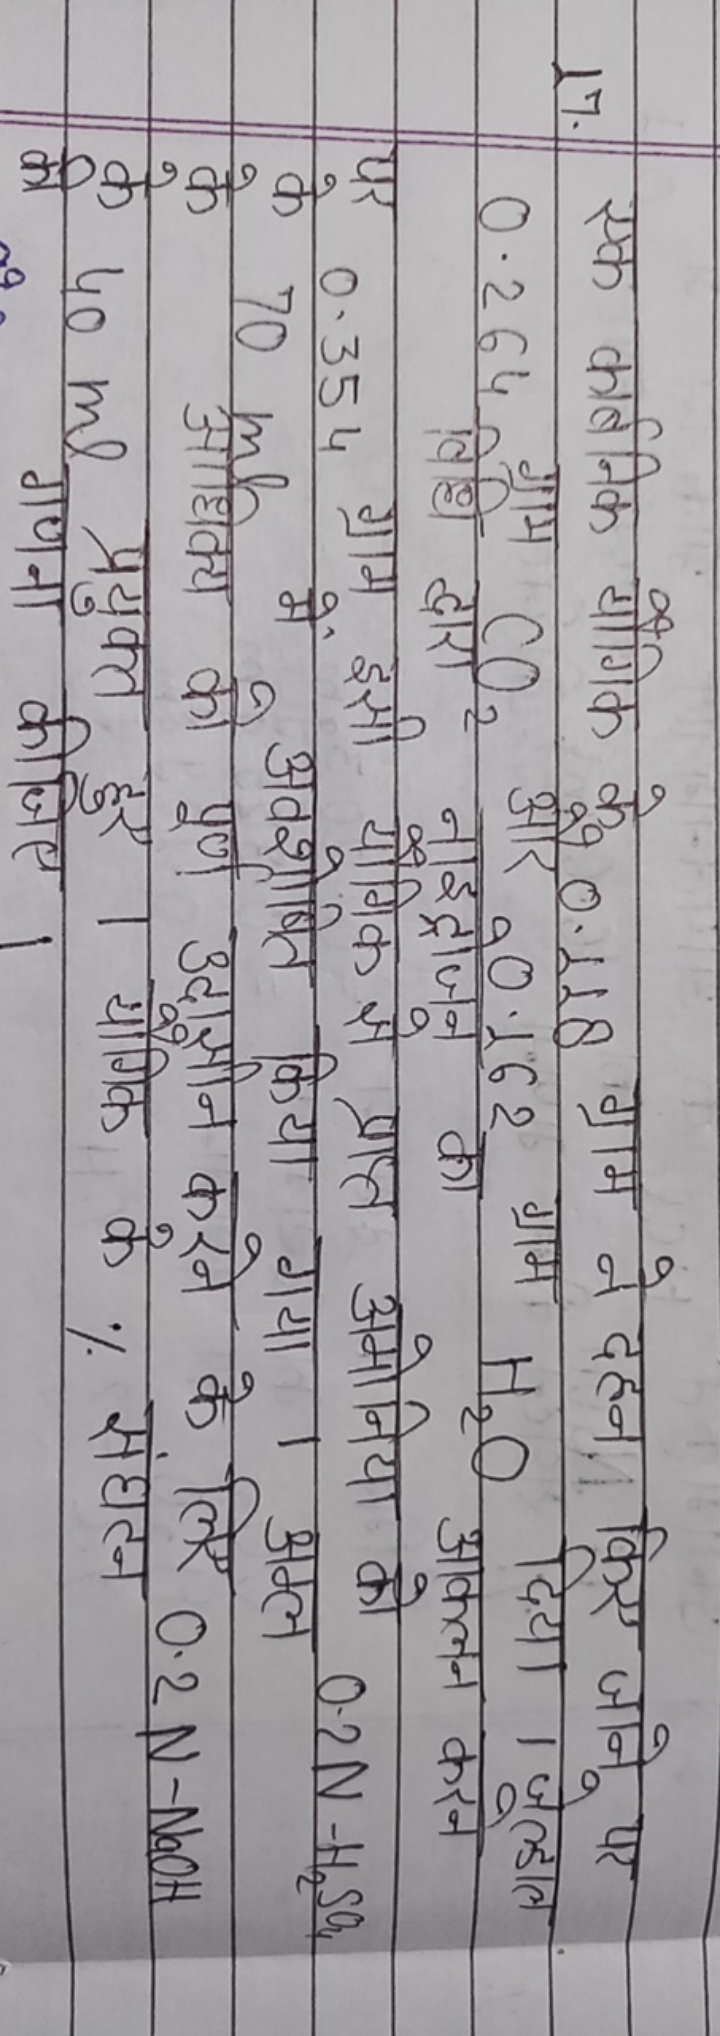 17.
एक कार्बनिक यौगिक के 0.118 ग्राम ने दहन किए जाने पर
0.264 ग्राम CO2 और 0.162 ग्राम H2O दिया । जेल्डाल
विधि द्वारा नाइट्रोजन का आकलन करन
पर 0.354 ग्राम इसी यौगिक से प्राप्त अमोनिया को 0.2N-H2SO4
के 70 ml में अवशोषित किया गया । अम्ल
के आधिक्य को पूर्ण उदासीन करने के लिए 0.2 N-NaOH
के 40 ml प्रयुक्त हुए । यौगिक के % संघटन
की गणना कीजिए ।